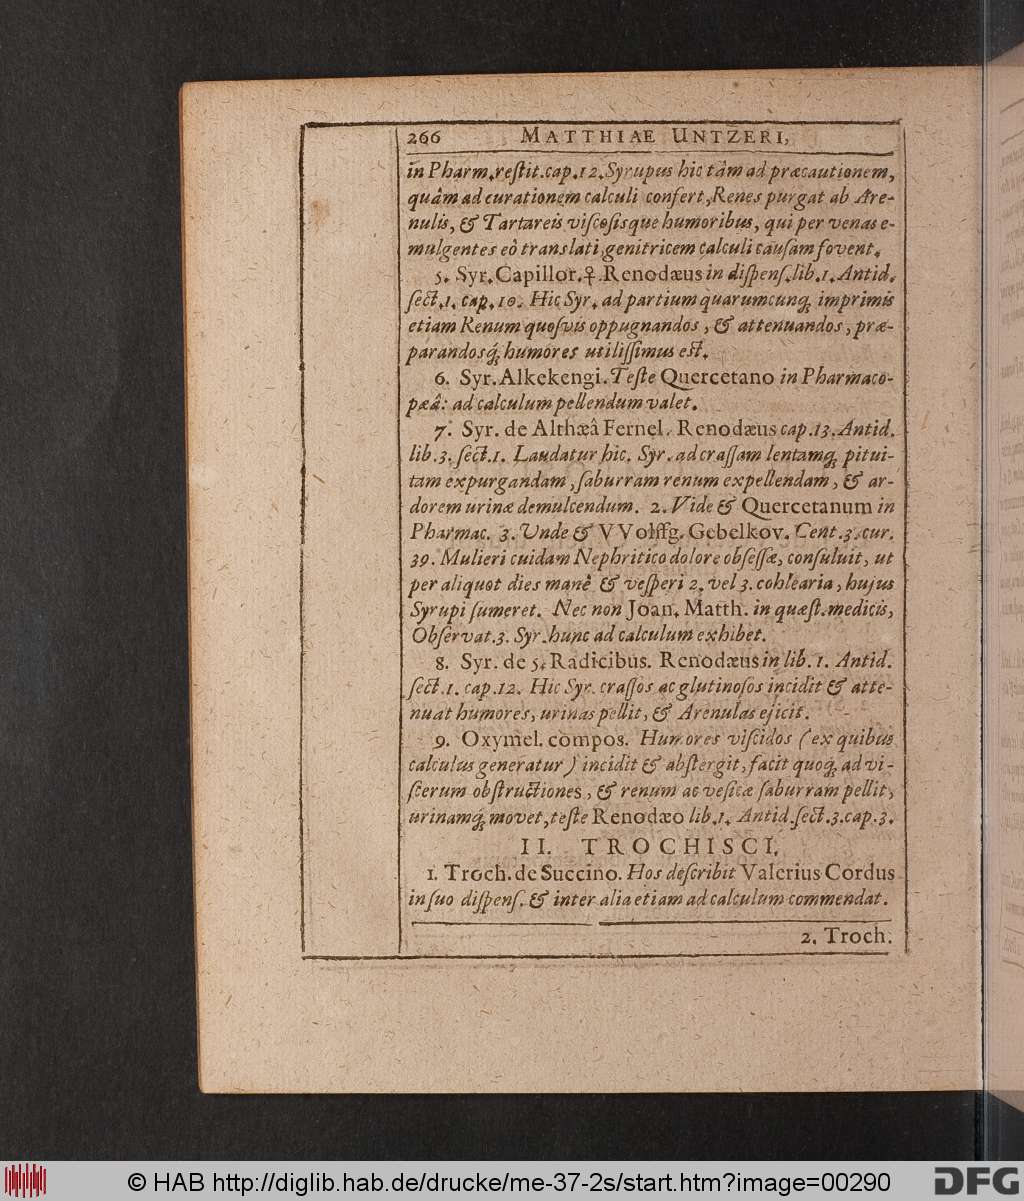 266 MATTHIAE UNTZERI,
in Pharm. reſtit. cap. 12. Syrupus hic tàm ad præcautionem,
quàm ad curationem calculi confert, Renes purgat ab Are-
nulis, & Tartareis viſcoſisque humoribus, qui per venas e-
mulgentes eò translati, genitricem calculi cauſam fovent.
5. Syr. Capillor. ♀. Renodæus in diſpenſ. lib. 1. Antid.
ſect. 1. cap. 10. Hic Syr. ad partium quarumcunq; imprimis
etiam Renum quoſvis oppugnandos, & attenuandos, præ-
parandosq́; humores utiliſſimus eſt.
6. Syr. Alkekengi. Teſte Quercetano in Pharmaco-
pæâ: ad calculum pellendum valet.
7. Syr. de Althæâ Fernel. Renodæus cap. 13. Antid.
lib. 3. ſect. 1. Laudatur hic. Syr. ad craſſam lentamq́; pitui-
tam expurgandam, ſaburram renum expellendam, & ar-
dorem urinæ demulcendum. 2. Vide & Quercetanum in
Pharmac. 3. Unde & VVolffg. Gebelkov. Cent. 3. cur.
39. Mulieri cuidam Nephritico dolore obſeſſæ, conſuluit, ut
per aliquot dies manè & veſperi 2. vel 3. cohlearia, hujus
Syrupi ſumeret. Nec non Joan. Matth. in quæſt. medicis,
Obſervat. 3. Syr. hunc ad calculum exhibet.
8. Syr. de 5. Radicibus. Renodæus in lib. 1. Antid.
ſect. 1. cap. 12. Hic Syr. craſſos ac glutinoſos incidit & atte-
nuat humores, urinas pellit, & Arenulas ejicit.
9. Oxymel. compos. Humores viſcidos (ex quibus
calculus generatur) incidit & abſtergit, facit quoq; ad vi-
ſcerum obſtructiones, & renum ac veſicæ ſaburram pellit,
urinamq́; movet, teſte Renodæo lib. 1. Antid. ſect. 3. cap. 3.
II. TROCHISCI.
1. Troch. de Succino. Hos deſcribit Valerius Cordus
in ſuo diſpenſ. & inter alia etiam ad calculum commendat.
2. Troch.
© HAB http://diglib.hab.de/drucke/me-37-2s/start.htm?image=00290
DFG